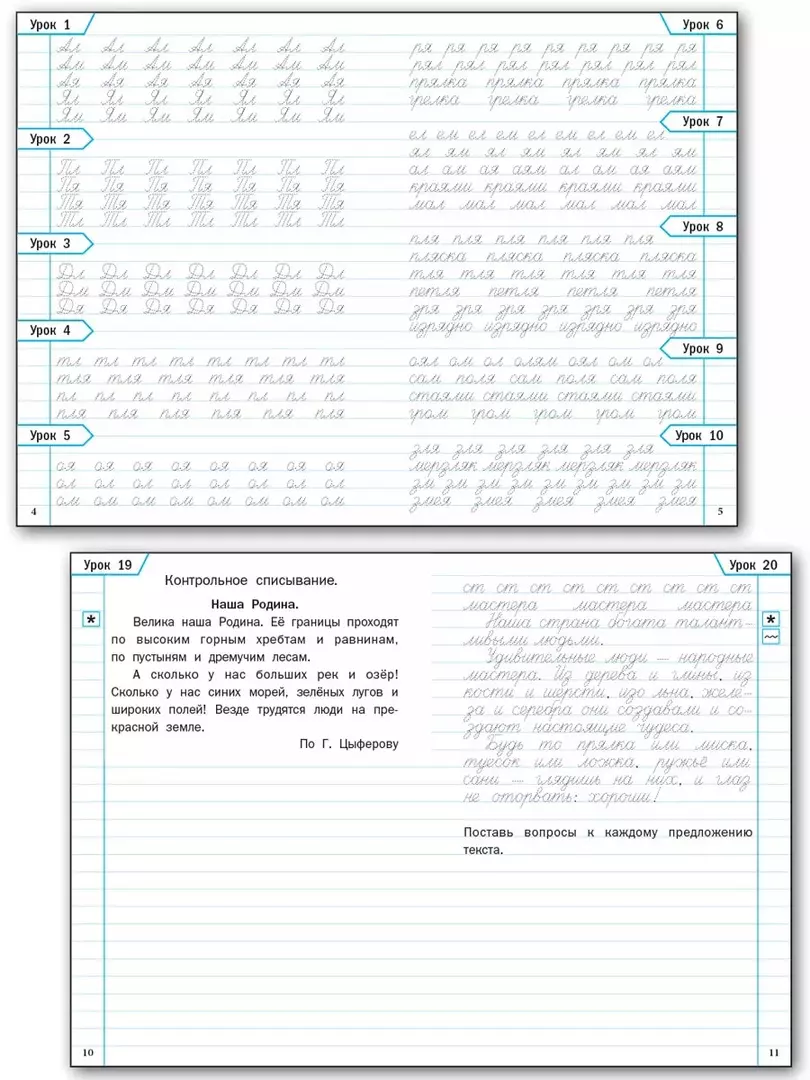 Урок 1
Ал Ал Ал Ал Ал Ал Ал
Ам Ам Ам Ам Ам Ам Ам
Ая Ая Ая Ая Ая Ая Ая
Ял Ял Ял Ял Ял Ял Ял
Ям Ям Ям Ям Ям Ям Ям
Урок 2
Пл Пл Пл Пл Пл Пл Пл
Пя Пя Пя Пя Пя Пя Пя
Тя Тя Тя Тя Тя Тя Тя
Тл Тл Тл Тл Тл Тл Тл
Урок 3
Дл Дл Дл Дл Дл Дл Дл
Дм Дм Дм Дм Дм Дм Дм
Дя Дя Дя Дя Дя Дя Дя
Урок 4
тл тл тл тл тл тл тл тл
тля тля тля тля тля тля
пл пл пл пл пл пл пл пл
пля пля пля пля пля пля
Урок 5
оя оя оя оя оя оя оя оя
ол ол ол ол ол ол ол ол
ом ом ом ом ом ом ом ом
4
Урок 6
ря ря ря ря ря ря ря ря ря
рял рял рял рял рял рял рял
прялка прялка прялка прялка
грелка грелка грелка грелка
Урок 7
ел ем ел ем ел ем ел ем ел
ял ям ял ям ял ям ял ям
ал ам ая аям ал ам ая аям
краями краями краями краями
мал мал мал мал мал мал
Урок 8
пля пля пля пля пля пля
пляска пляска пляска пляска
тля тля тля тля тля тля
петля петля петля петля
зря зря зря зря зря зря зря
изрядно изрядно изрядно изрядно
Урок 9
оял ом ол олям оял ом ол
сам поля сам поля сам поля
стаями стаями стаями стаями
гром гром гром гром гром
Урок 10
зля зля зля зля зля зля
мерзляк мерзляк мерзляк мерзляк
зм зм зм зм зм зм зм зм зм
змея змея змея змея
5
Урок 19
Контрольное списывание.
Наша Родина.
Велика наша Родина. Её границы проходят
по высоким горным хребтам и равнинам,
по пустыням и дремучим лесам.
А сколько у нас больших рек и озёр!
Сколько у нас синих морей, зелёных лугов и
широких полей! Везде трудятся люди на пре-
красной земле.
По Г. Цыферову
10
Урок 20
ст ст ст ст ст ст ст ст ст
мастера мастера мастера
Наша страна богата талант-
ливыми людьми.
Удивительные люди — народные
мастера. Из дерева и глины, из
кости и шерсти, изо льна, желе-
за и серебра они создавали и со-
здают настоящие чудеса.
Будь то прялка или миска,
туесок или ложка, ружьё или
сани — глядишь на них, и глаз
не оторвать: хороши!
Поставь вопросы к каждому предложению
текста.
11